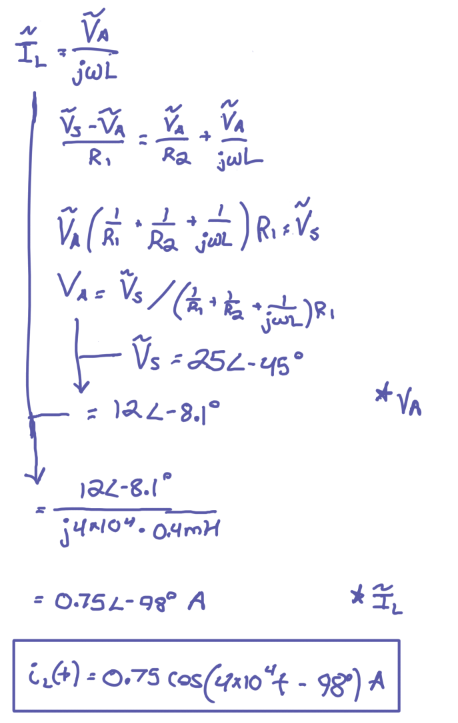 Ĩ_L = Ṽ_A / jωL
(Ṽ_S - Ṽ_A) / R_1 = Ṽ_A / R_2 + Ṽ_A / jωL
Ṽ_A (1/R_1 + 1/R_2 + 1/jωL) R_1 = Ṽ_S
V_A = Ṽ_S / (1/R_1 + 1/R_2 + 1/jωL) R_1
Ṽ_S = 25∠-45°
= 12∠-8.1° * V_A
= 12∠-8.1° / j4x10^4 · 0.4mH
= 0.75∠-98° A * Ĩ_L
i_L(t) = 0.75 cos(4x10^4 t - 98°) A